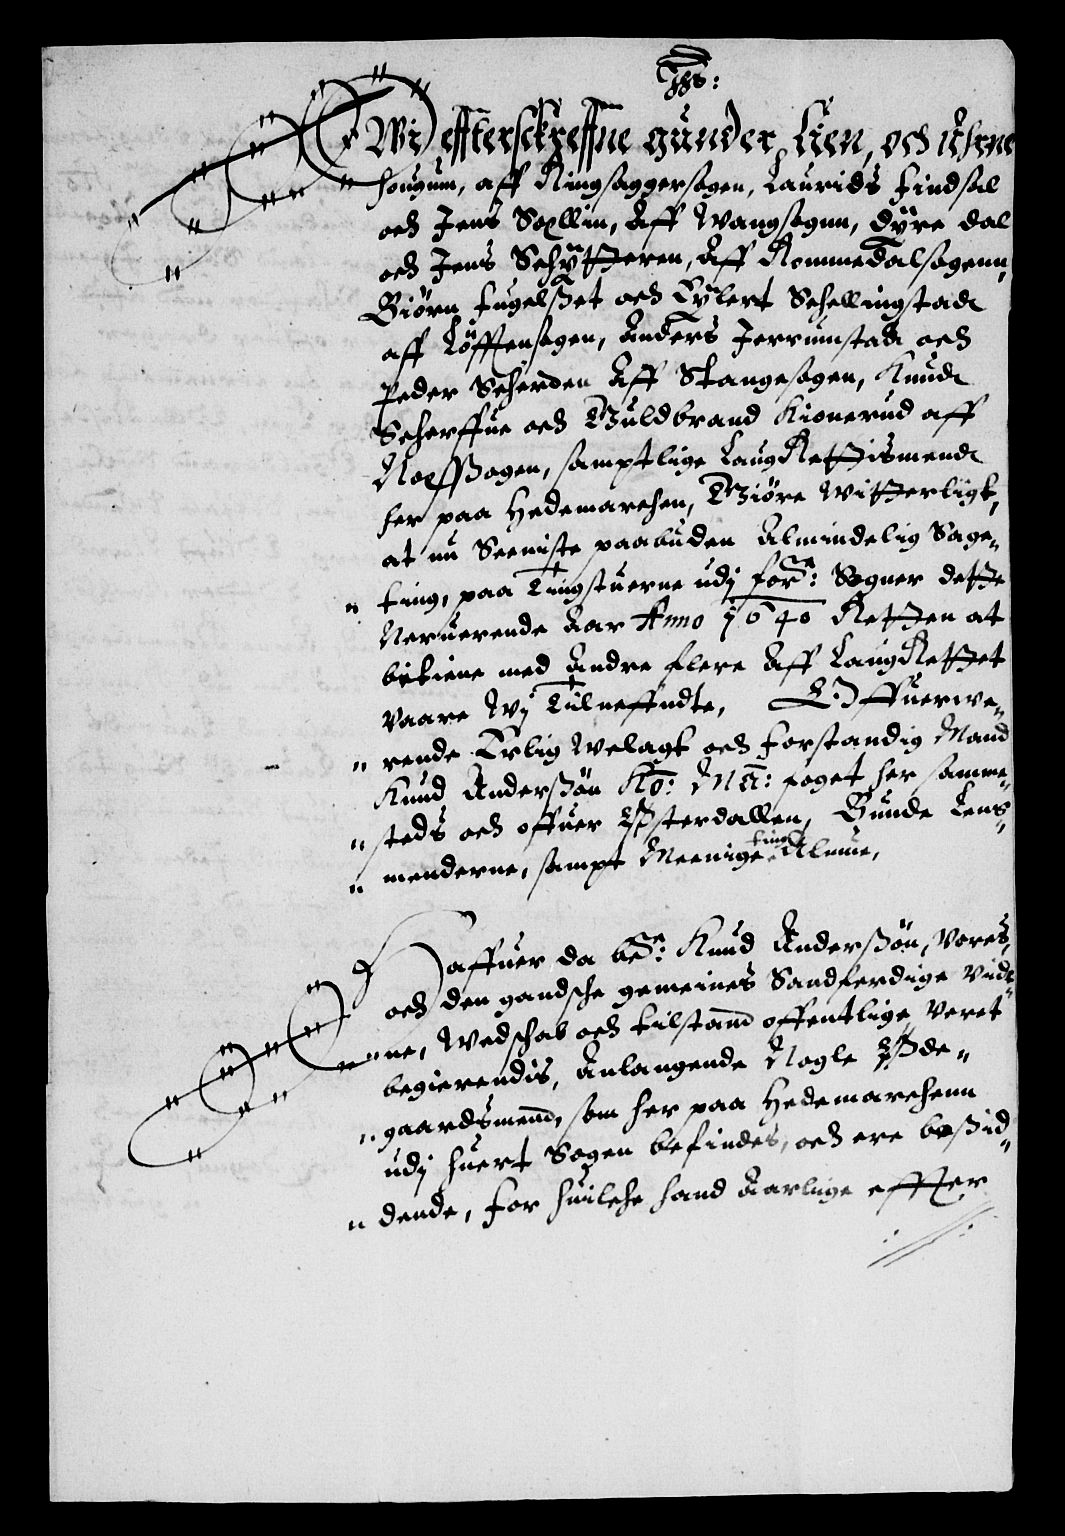 Ihs:
Wi effterschreffne gunder Lien, och Uhrne
hougum, aff Ringsaggersogen, Laurids findsal
och Jens Sollin, Aff Wangsognn, Dyre dal
och Jens Schytteren, Aff Rommedalsogenn,
Biörn fugelsset och Eylert Schellingstad
aff Löfftensogen, Anders Jerrumstad och
Peder Scherden Aff Stangesogen, Knud
Scherffue och Guldbrand Kionerud aff
Noessogen, samptlige LaugRettismend
her paa Hedemarchen, Giöre Witterligt,
at nu Seeniste paabuden Almindelig Sage„
„ ting, paa Tingstuerne udj forne: Sogner dette
Neruerende Aar Anno 1640 Retten at
bekiene med Andre flere Aff LaugRettet
vaare Wj Tilneffndte, Offuerwe„
„ rende Erlig Welagt och forstandig Mand
Knud Anderssön Ko: Ma: foget her samme„
„ steds och offuer Østerdallen, Bunde Lens„
„ menderne, sampt Meenige ting Almue,
Haffuer da be.te: Knud Anderssön, Vores,
och den gandsche gemeines Sandferdige Vid„
„ ne, Wedschab och tilstand offentlige, Veret
begierendis, Anlangende Nogle Øde„
„ gaardsmend, som her paa Hedemarchenn
udj huert Sogen befindes, och ere bossid„
„ dende, for huilche hand Aarlige effter